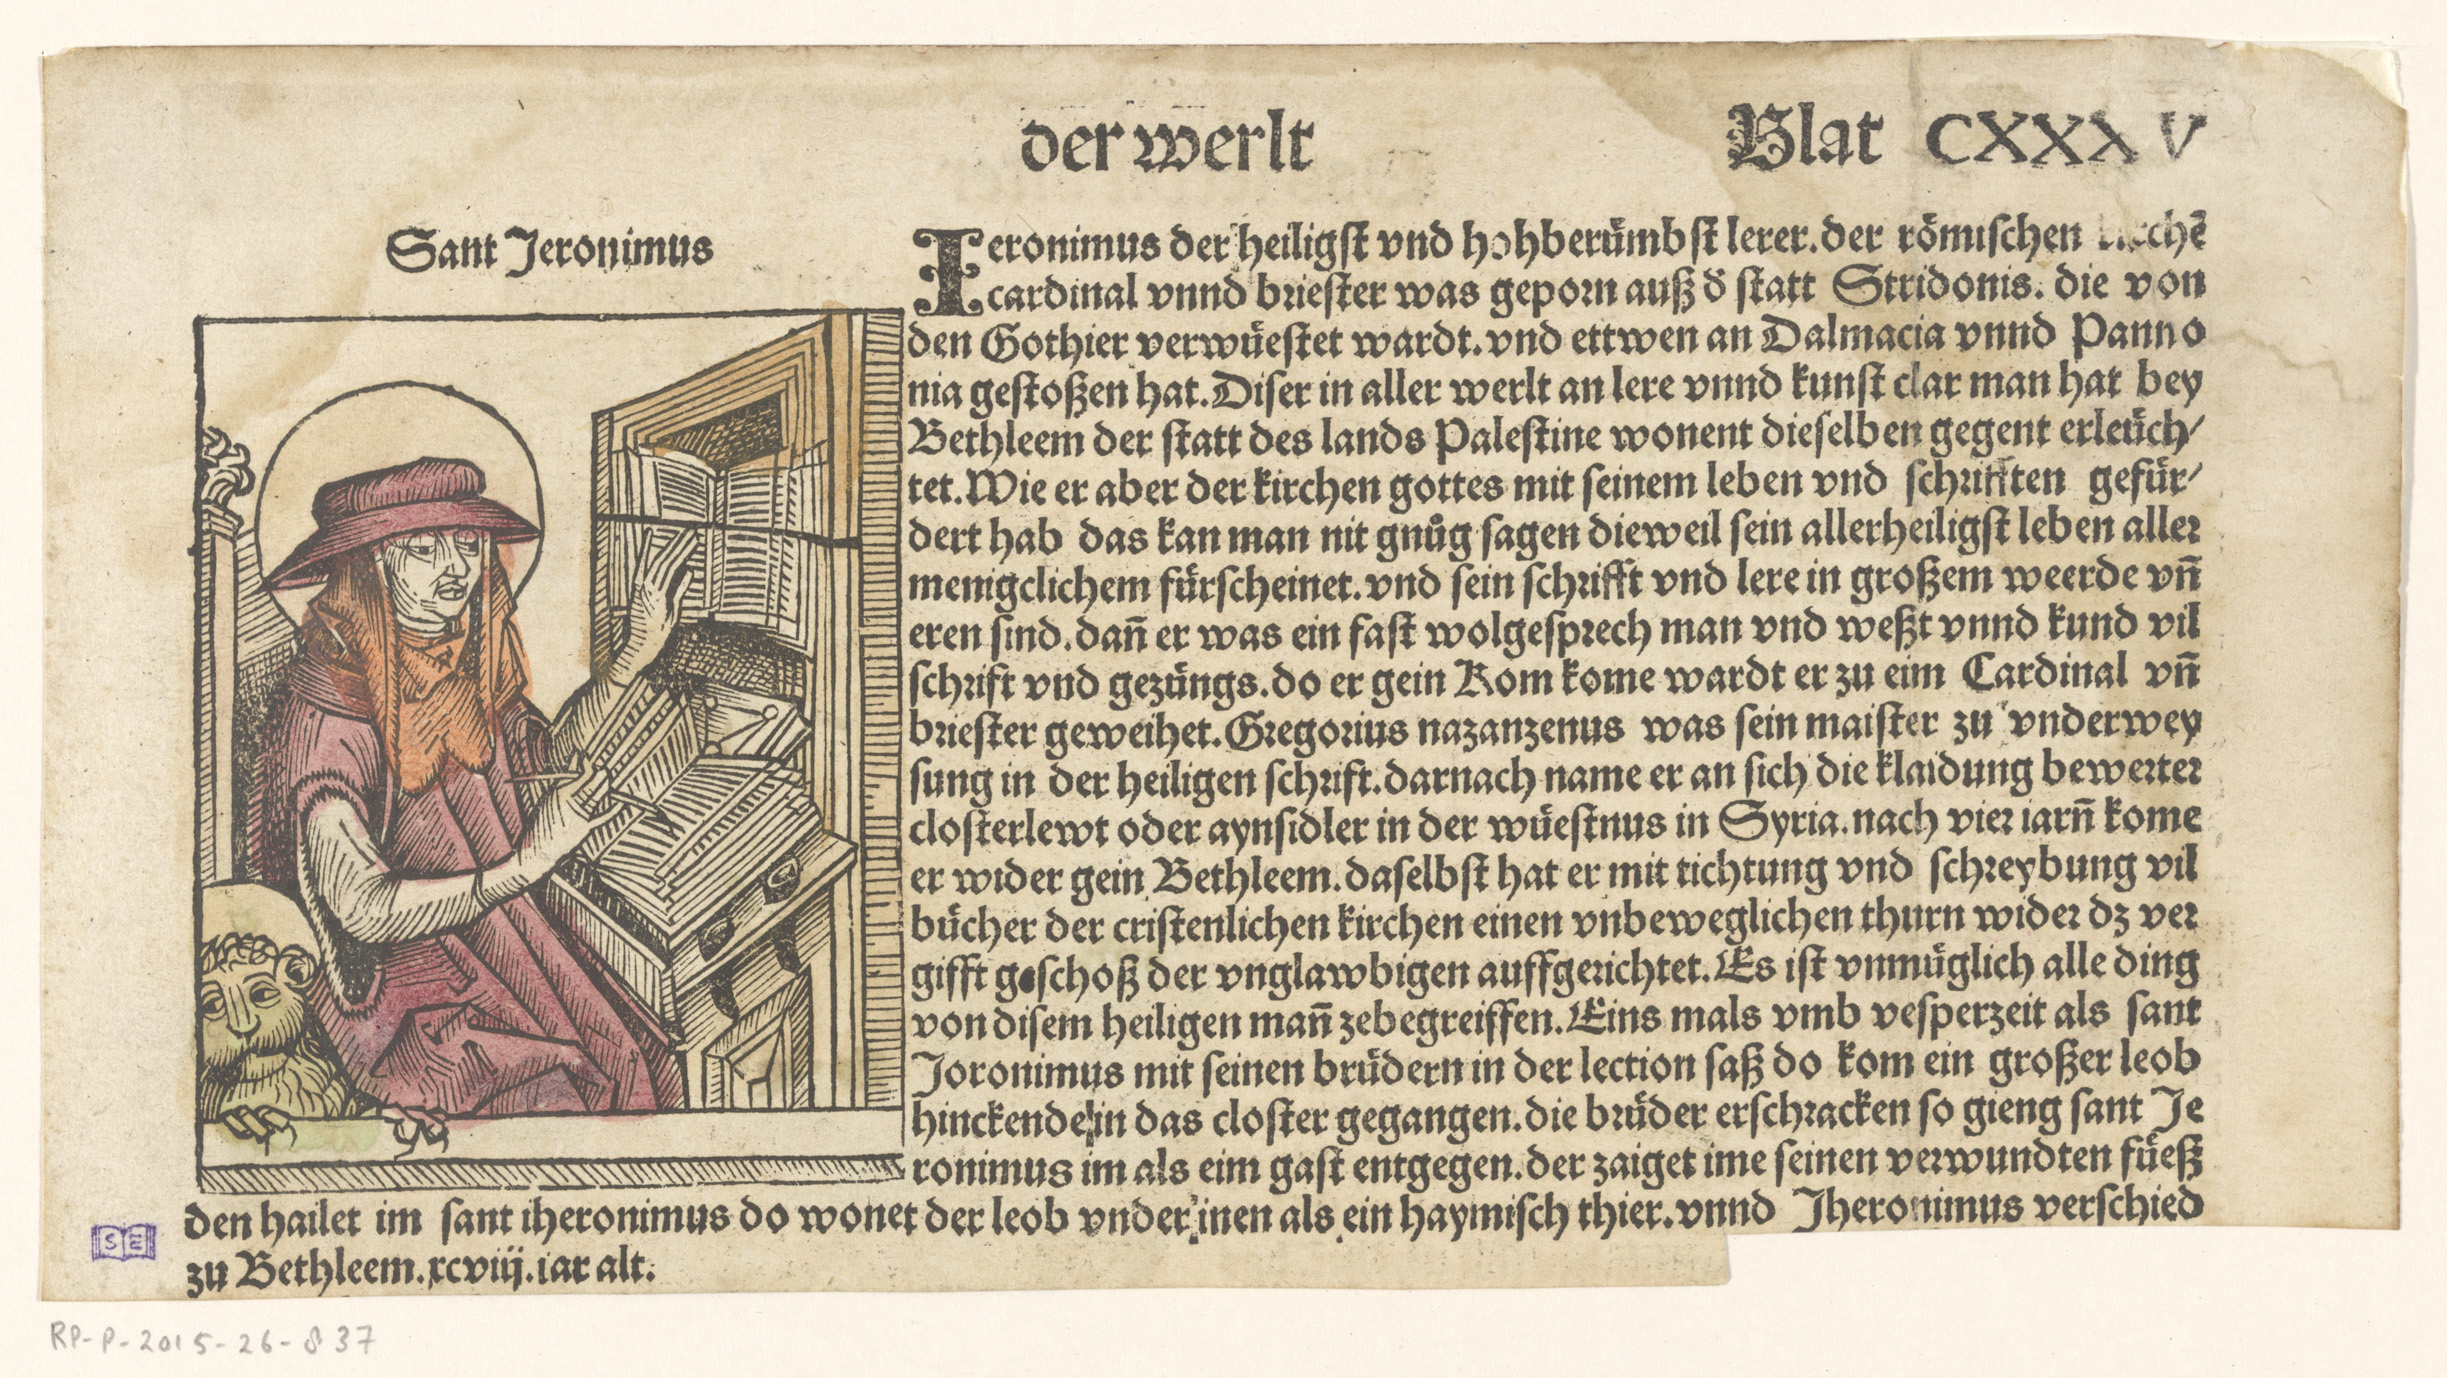 der werlt
Blat CXXXV
Sant Jeronimus
Ieronimus der heiligſt vnd hohberümbſt lerer. der römiſchen kirchē
cardinal vnnd brieſter was geporn auß d̕ ſtatt Stridonis. die von
den Gothier verwüeſtet wardt. vnd ettwen an Dalmacia vnnd Panno
nia geſtoßen hat. Diſer in aller werlt an lere vnnd kunſt clar man hat bey
Bethleem der ſtatt des lands Paleſtine wonent dieſelben gegent erleüch/
tet. Wie er aber der kirchen gottes mit ſeinem leben vnd ſchrifften gefür/
dert hab das kan man nit gnůg ſagen dieweil ſein allerheiligſt leben aller
menigclichem fürſcheinet. vnd ſein ſchrifft vnd lere in großem weerde vn̄
eren ſind. dan̄ er was ein faſt wolgeſprech man vnd weßt vnnd kund vil
ſchrift vnd gezüngs. do er gein Rom kome wardt er zu eim Cardinal vn̄
brieſter geweihet. Gregorius nazanzenus was ſein maiſter zu vnderwey
ſung in der heiligen ſchrift. darnach name er an ſich die klaidung bewerter
cloſterlewt oder aynſidler in der wüeſtnus in Syria. nach vier iarn̄ kome
er wider gein Bethleem. daſelbſt hat er mit tichtung vnd ſchreybung vil
bücher der criſtenlichen kirchen einen vnbeweglichen thurn wider dz ver
gifft geſchoß der vnglawbigen auffgerichtet. Es iſt vnmüglich alle ding
von diſem heiligen man̄ zebegreiffen. Eins mals vmb veſperzeit als ſant
Joronimus mit ſeinen brüdern in der lection ſaß do kom ein großer leob
hinckende in das cloſter gegangen. die brüder erſchracken ſo gieng ſant Je
ronimus im als eim gaſt entgegen. der zaiget ime ſeinen verwundten füeß
den hailet im ſant iheronimus do wonet der leob vnder inen als ein haymiſch thier. vnnd Jheronimus verſchied
zu Bethleem. xcviij. iar alt.
SE
RP-P-2015-26-837